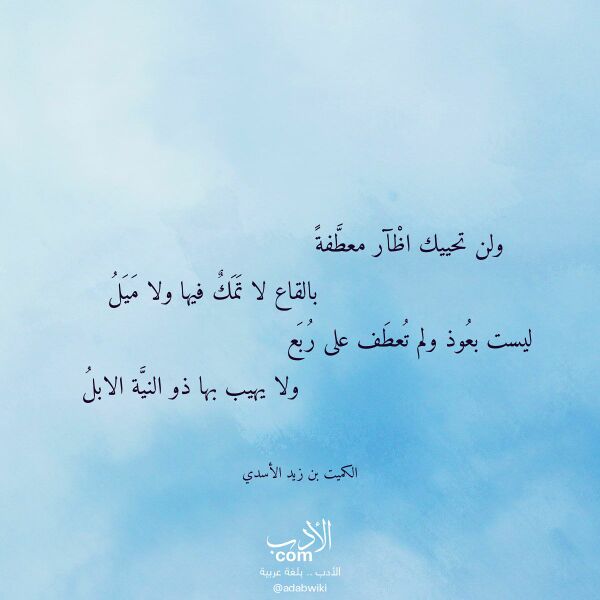 ولن تحييك اظْآر معطَّفةً
بالقاع لا تَمَكٌ فيها ولا مَيَلُ
ليست بعُوذ ولم تُعطَف على رُبَع
ولا يهيب بها ذو النيَّة الابلُ
الكميت بن زيد الأسدي
الأدب
com
الأدب .. بلغة عربية
@adabwiki